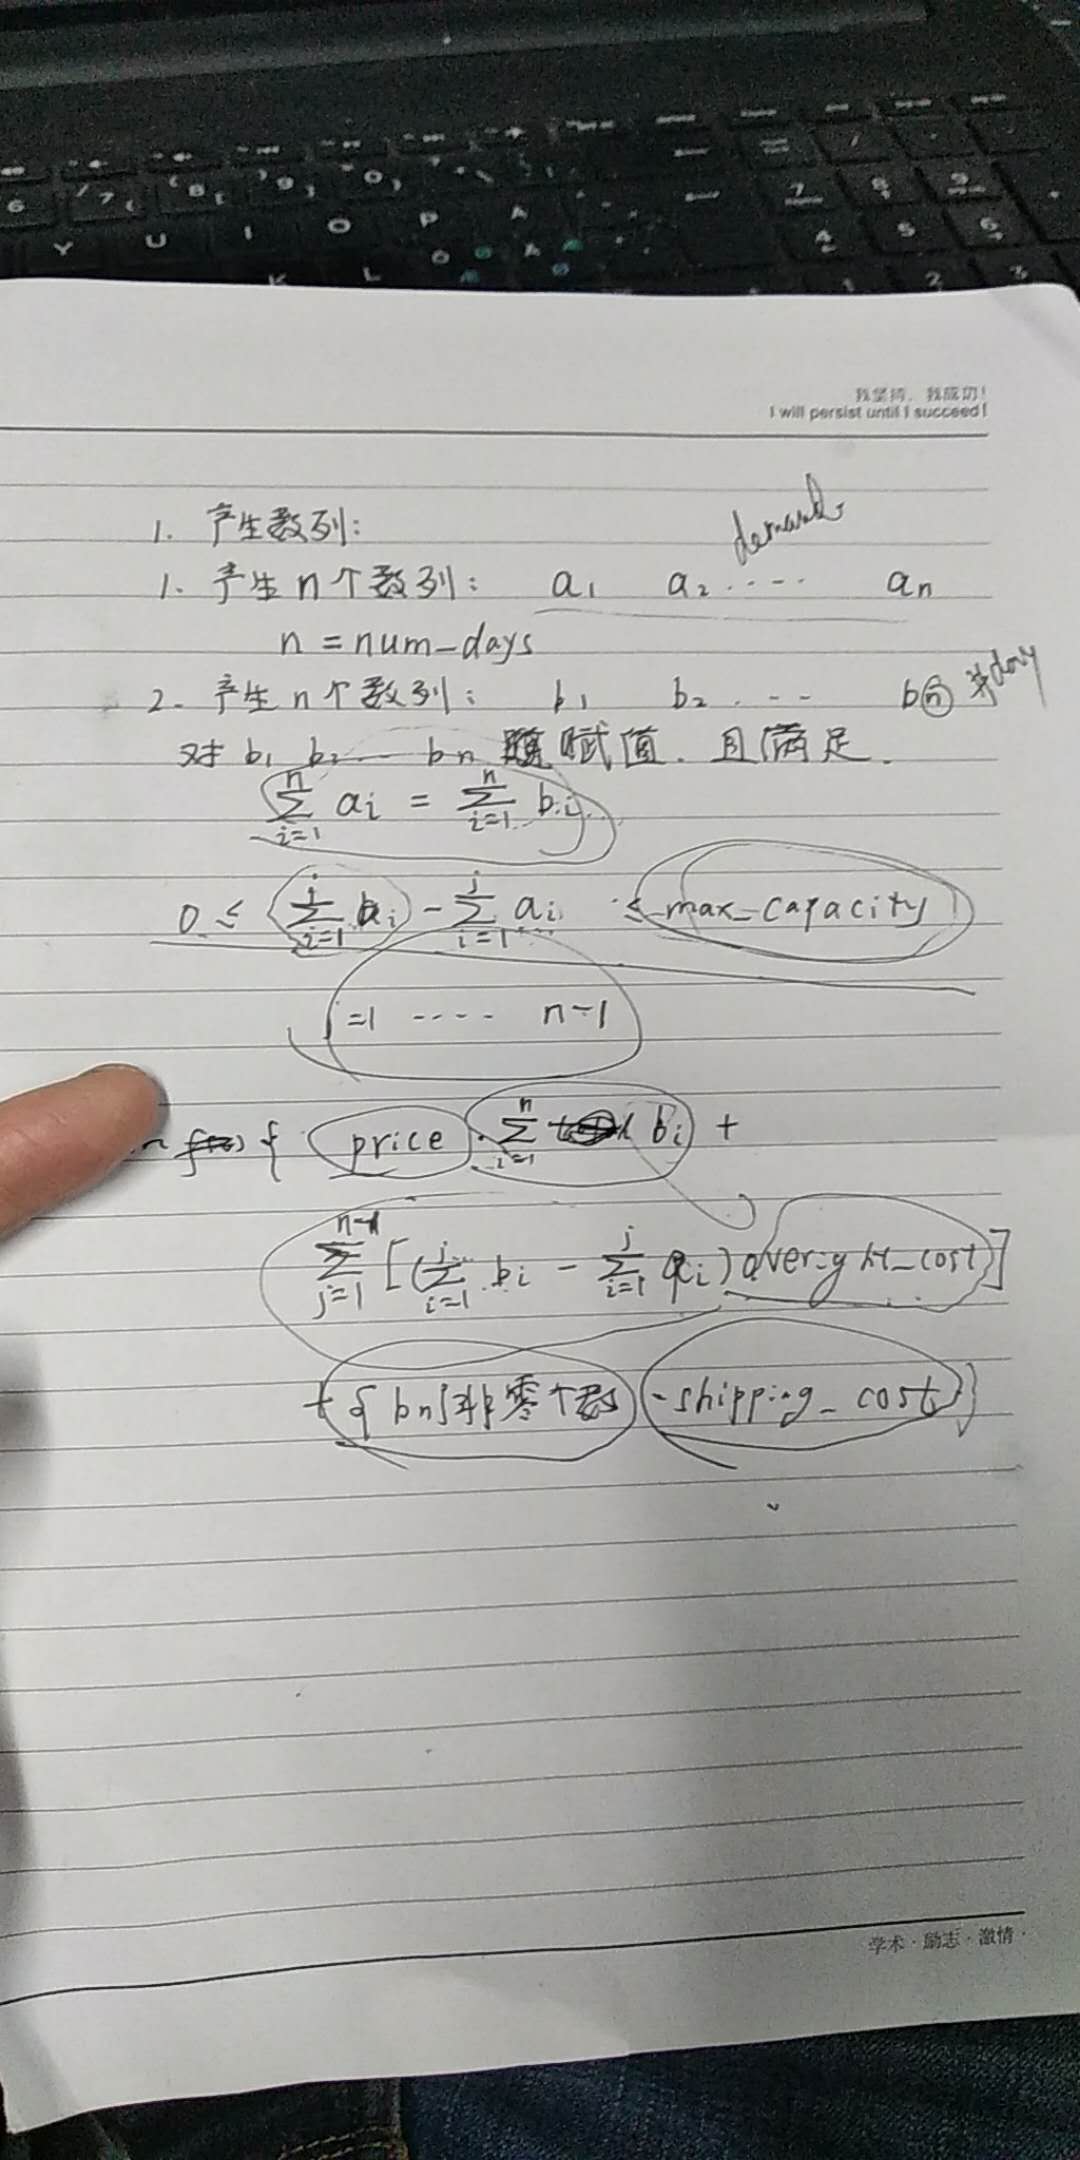 我坚持，我成功！
I will persist until I succeed!
1. 产生数列：
demand
1. 产生n个数列： a₁ a₂ ····· aₙ
n = num_days
2. 产生n个数列： b₁ b₂ ... bₙ day
对 b₁ b₂ — bₙ 赋值. 且满足.
∑ᵢ₌₁ⁿ aᵢ = ∑ᵢ₌₁ⁿ bᵢ
0 ≤ ∑ᵢ₌₁ʲ bᵢ - ∑ᵢ₌₁ʲ aᵢ ≤ max_capacity
j=1 ····· n-1
{ price · ∑ᵢ₌₁ⁿ bᵢ +
∑ⱼ₌₁ⁿ⁻¹ [(∑ᵢ₌₁ʲ bᵢ - ∑ᵢ₌₁ʲ aᵢ)
+ {bₙ}非零个数 · shipping_cost}
学术·励志·激情·